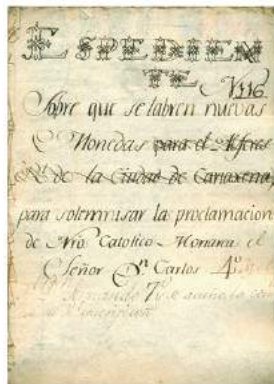 ESPEDIEN
TE
Sobre que se labren nuevas
Monedas para el Alferes
de la Ciudad de Cartaxena
para solemnisar la proclamacion
de Nro. Catolico Monarca el
Señor Dn. Carlos 4º
7º